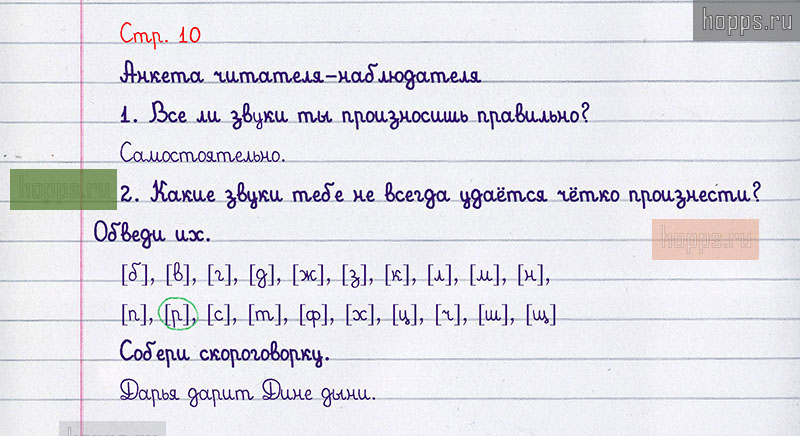 hopps.ru
Стр. 10
Анкета читателя-наблюдателя
1. Все ли звуки ты произносишь правильно?
Самостоятельно.
hopps.ru
2. Какие звуки тебе не всегда удаётся чётко произнести?
Обведи их.
hopps.ru
[б], [в], [г], [д], [ж], [з], [к], [л], [м], [н],
[п], [р], [с], [т], [ф], [х], [ц], [ч], [ш], [щ]
Собери скороговорку.
Дарья дарит Дине дыни.
hopps.ru